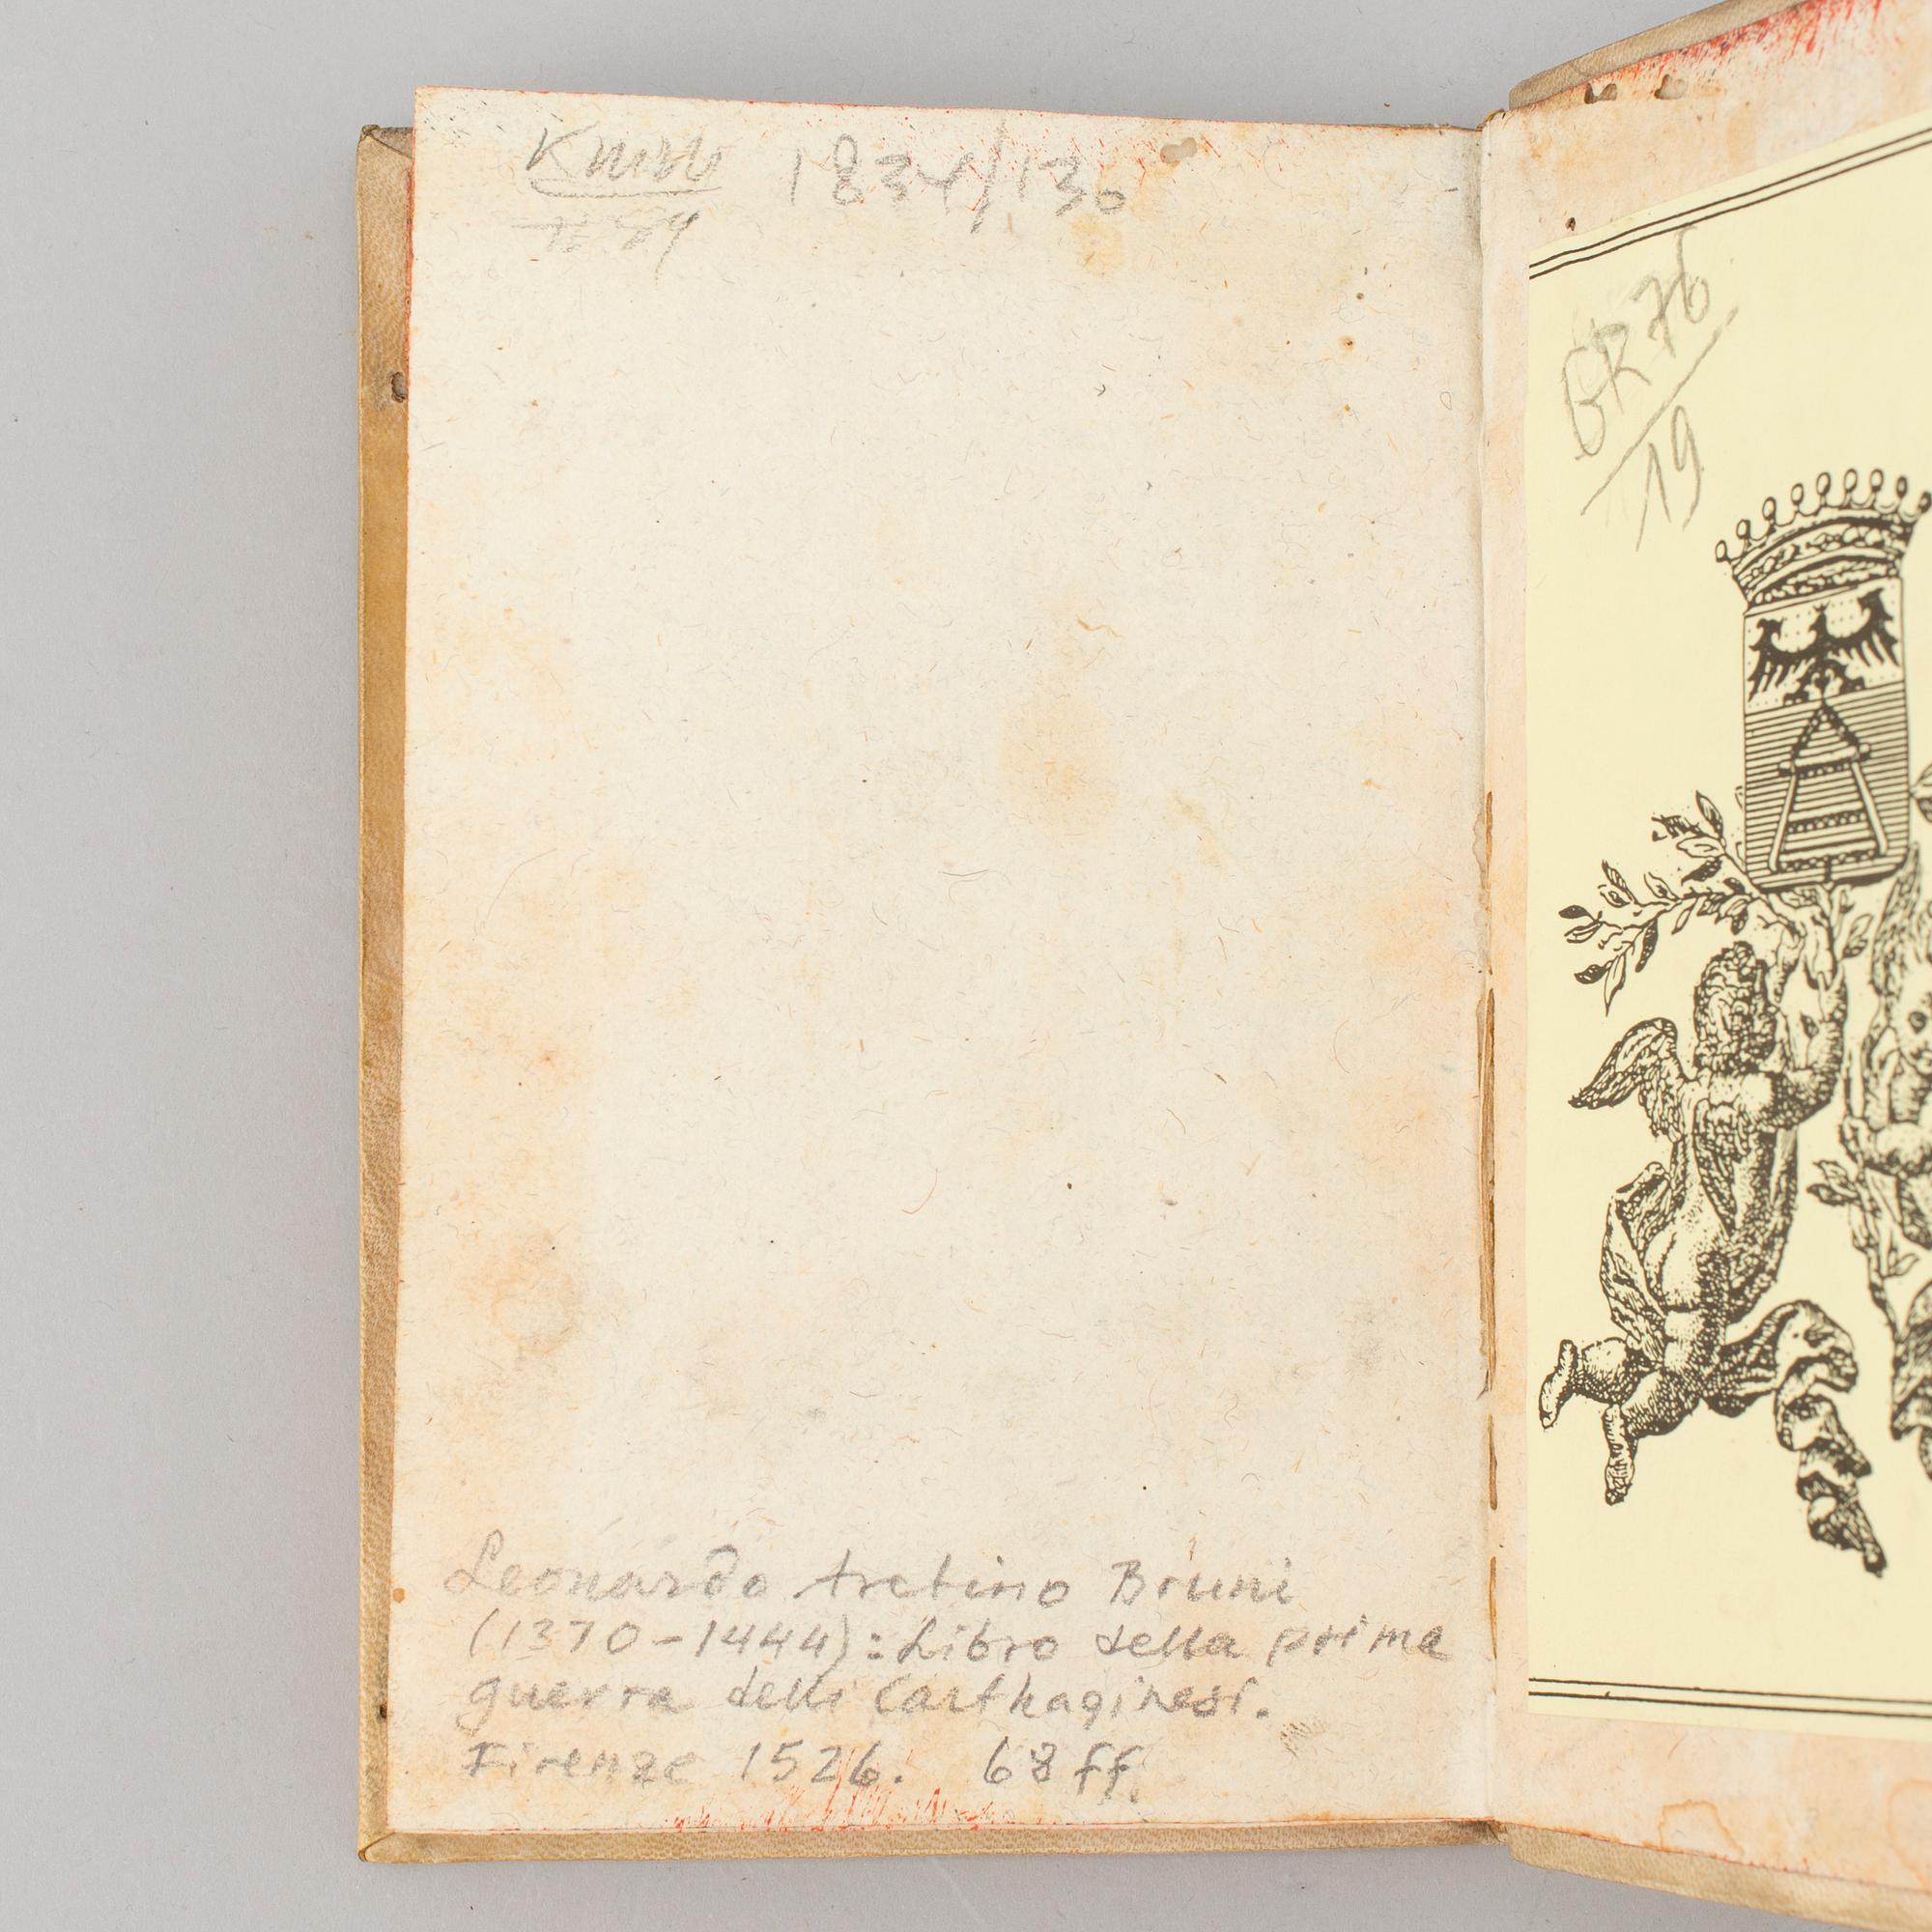 1834/130
Leonardo Aretino Bruni
(1370-1444): Libro della prima
guerra delli Carthaginesi.
Firenze 1526. 68 ff.
GR 76
19